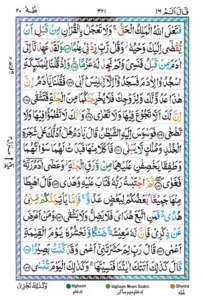 قَالَ اَلَمْ ١٦ ٣٢١ طٰهٰ ٢٠
فَتَعٰلَى اللّٰهُ الْمَلِكُ الْحَقُّ ۚ وَلَا تَعْجَلْ بِالْقُرْاٰنِ مِنْ قَبْلِ اَنْ
يُّقْضٰٓى اِلَيْكَ وَحْيُهٗ ۫ وَقُلْ رَّبِّ زِدْنِيْ عِلْمًا وَلَقَدْ عَهِدْنَآ اِلٰٓى
اٰدَمَ مِنْ قَبْلُ فَنَسِيَ وَلَمْ نَجِدْ لَهٗ عَزْمًا وَاِذْ قُلْنَا لِلْمَلٰٓئِكَةِ
اسْجُدُوْا لِاٰدَمَ فَسَجَدُوْٓا اِلَّآ اِبْلِيْسَ اَبٰى فَقُلْنَا يٰٓاٰدَمُ اِنَّ
هٰذَا عَدُوٌّ لَّكَ وَلِزَوْجِكَ فَلَا يُخْرِجَنَّكُمَا مِنَ الْجَنَّةِ فَتَشْقٰى
اِنَّ لَكَ اَلَّا تَجُوْعَ فِيْهَا وَلَا تَعْرٰى وَاَنَّكَ لَا تَظْمَؤُا فِيْهَا وَلَا
تَضْحٰى فَوَسْوَسَ اِلَيْهِ الشَّيْطٰنُ قَالَ يٰٓاٰدَمُ هَلْ اَدُلُّكَ عَلٰى شَجَرَةِ
الْخُلْدِ وَمُلْكٍ لَّا يَبْلٰى فَاَكَلَا مِنْهَا فَبَدَتْ لَهُمَا سَوْاٰتُهُمَا
وَطَفِقَا يَخْصِفٰنِ عَلَيْهِمَا مِنْ وَّرَقِ الْجَنَّةِ وَعَصٰٓى اٰدَمُ رَبَّهٗ
فَغَوٰى ثُمَّ اجْتَبٰهُ رَبُّهٗ فَتَابَ عَلَيْهِ وَهَدٰى قَالَ اهْبِطَا
مِنْهَا جَمِيْعًا بَعْضُكُمْ لِبَعْضٍ عَدُوٌّ فَاِمَّا يَاْتِيَنَّكُمْ مِّنِّيْ
هُدًى فَمَنِ اتَّبَعَ هُدَايَ فَلَا يَضِلُّ وَلَا يَشْقٰى وَمَنْ اَعْرَضَ
عَنْ ذِكْرِيْ فَاِنَّ لَهٗ مَعِيْشَةً ضَنْكًا وَّنَحْشُرُهٗ يَوْمَ الْقِيٰمَةِ
اَعْمٰى قَالَ رَبِّ لِمَ حَشَرْتَنِيْٓ اَعْمٰى وَقَدْ كُنْتُ بَصِيْرًا
قَالَ كَذٰلِكَ اَتَتْكَ اٰيٰتُنَا فَنَسِيْتَهَا وَكَذٰلِكَ الْيَوْمَ تُنْسٰى
وَكَذٰلِكَ نَجْزِيْ
Idghaam Idghaam Meem Saakin Ghunna